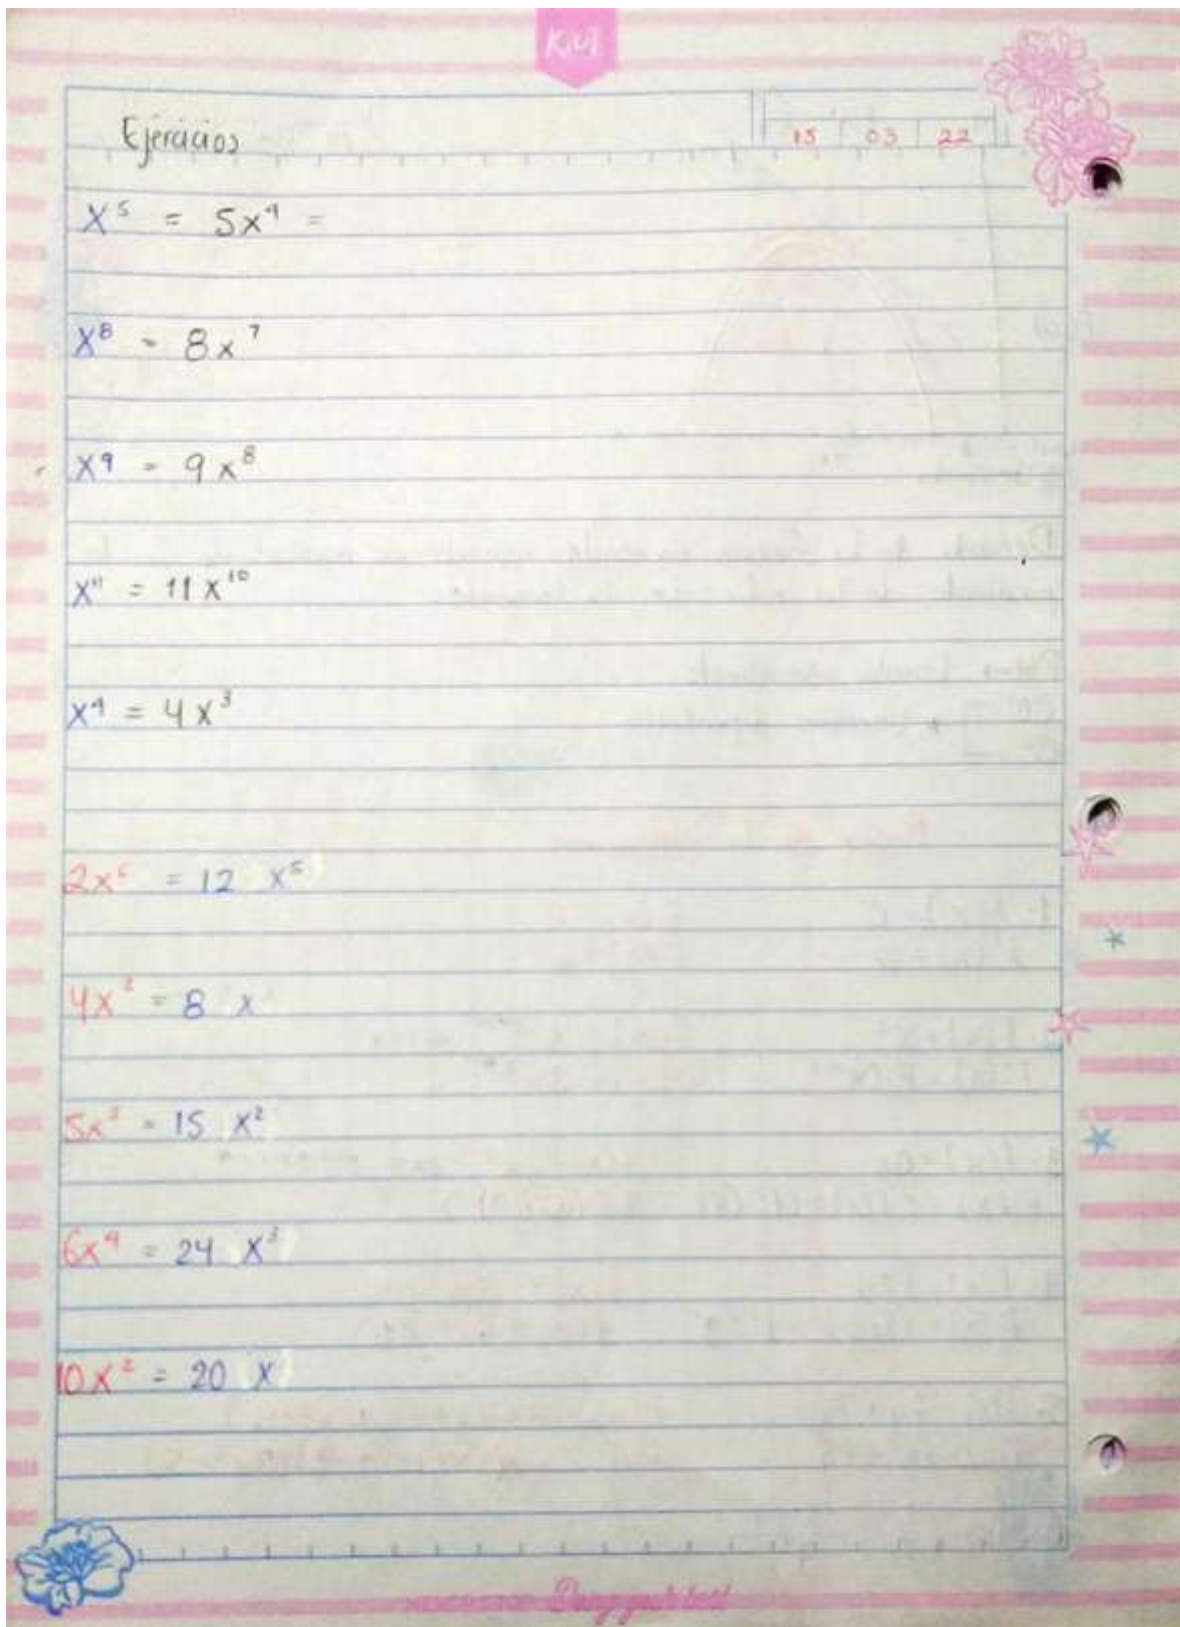 Kiut
Ejercicios
15 03 22
x⁵ = 5x⁴ =
x⁸ = 8x⁷
x⁹ = 9x⁸
x¹¹ = 11x¹⁰
x⁴ = 4x³
2x⁶ = 12 x⁵
4x² = 8 x
5x³ = 15 x²
6x⁴ = 24 x³
10x² = 20 x